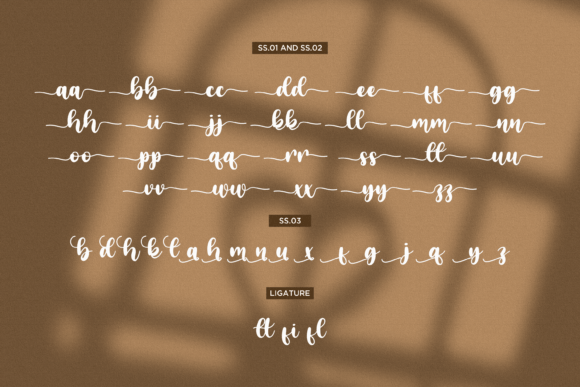 SS.01 AND SS.02
aa bb cc dd ee ff gg
hh ii jj kk ll mm nn
oo pp qq rr ss tt uu
vv ww xx yy zz
SS.03
b d h k l a h m n u x f g j q y z
LIGATURE
tt fi fl